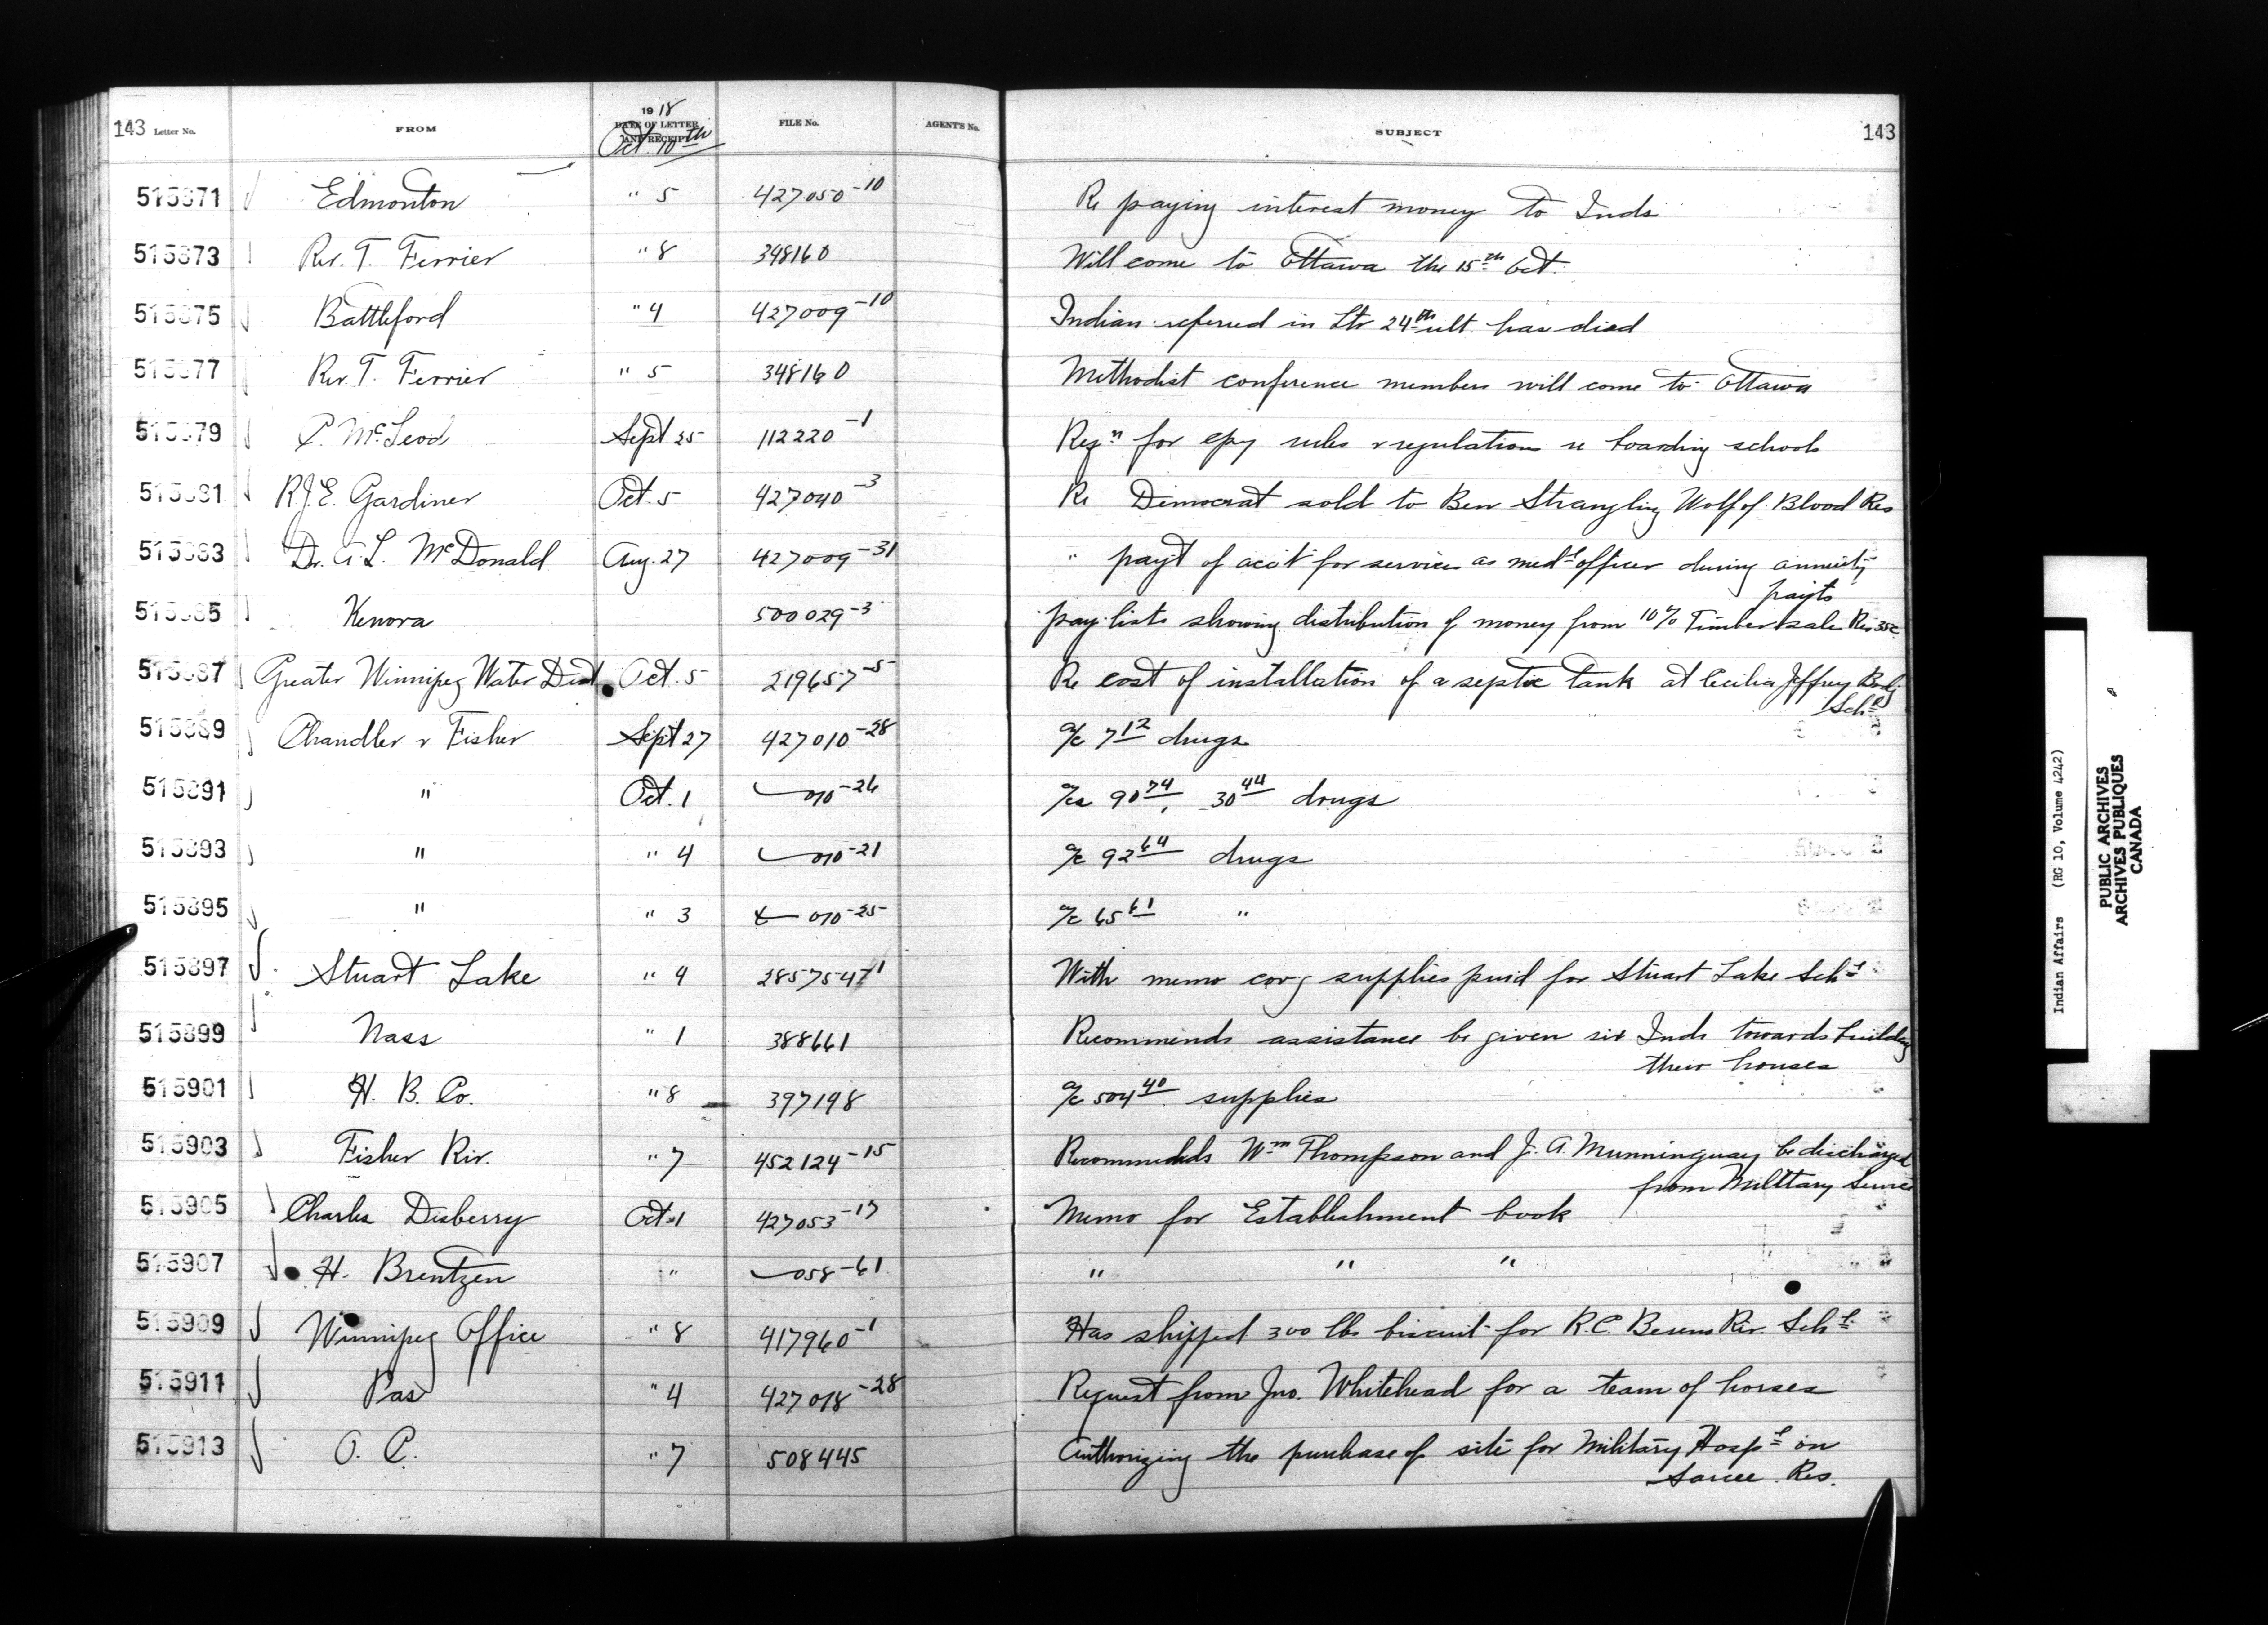 143 Letter No. FROM 1918 DATE OF LETTER AND RECEIPT FILE No. AGENT'S No. SUBJECT 143
Oct. 10th
515871 Edmonton " 5 427050-10 Re paying interest money to Inds
515873 Rev. T. Ferrier " 8 348160 Will come to Ottawa the 15th Oct.
515875 Battleford " 4 427009-10 Indian referred in Ltr 24th ult. has died
515877 Rev. T. Ferrier " 5 348160 Methodist conference members will come to Ottawa
515879 P. McLeod Sept 25 112220-1 Reqn for cpy rules & regulations re boarding schools
515881 R.J.E. Gardiner Oct. 5 427040-3 Re Democrat sold to Ben Strangling Wolf of Blood Res
515883 Dr. A. L. McDonald Aug. 27 427009-31 " payt of acct for services as medl officer during annuity
payts
515885 Kenora 500029-3 pay-lists showing distribution of money from 10% Timber sale Res 35c
515887 Greater Winnipeg Water Dist Oct. 5 219657-5 Re cost of installation of a septic tank at Cecilia Jeffrey Bodg
Schl
515889 Chandler & Fisher Sept 27 427010-28 a/c 7 12 drugs
515891 " Oct. 1 010-26 a/cs 90 74, 30 44 drugs
515893 " " 4 010-21 a/c 92 64 drugs
515895 " " 3 010-25 a/c 65 61 "
515897 Stuart Lake " 4 285754-1 With memo covg supplies paid for Stuart Lake Schl
515899 Nass " 1 388661 Recommends assistance be given six Inds towards building
their houses
515901 H. B. Co. " 8 397198 a/c 504 40 supplies
515903 Fisher Riv. " 7 452124-15 Recommends Wm Thompson and J. A. Munninguay be discharged
from Military Service
515905 Charles Disberry Oct 1 427053-17 Memo for Establishment book
515907 H. Brentzen " 058-61 " " "
515909 Winnipeg Office " 8 417960-1 Has shipped 300 lbs biscuit for R.C. Berens Riv. Schl
515911 Pas " 4 427018-28 Request from Jno. Whitehead for a team of horses
515913 O. C. " 7 508445 Authorizing the purchase of site for Military Hospl on
Sarcee Res.
Indian Affairs (RG 10, Volume 4242)
PUBLIC ARCHIVES
ARCHIVES PUBLIQUES
CANADA